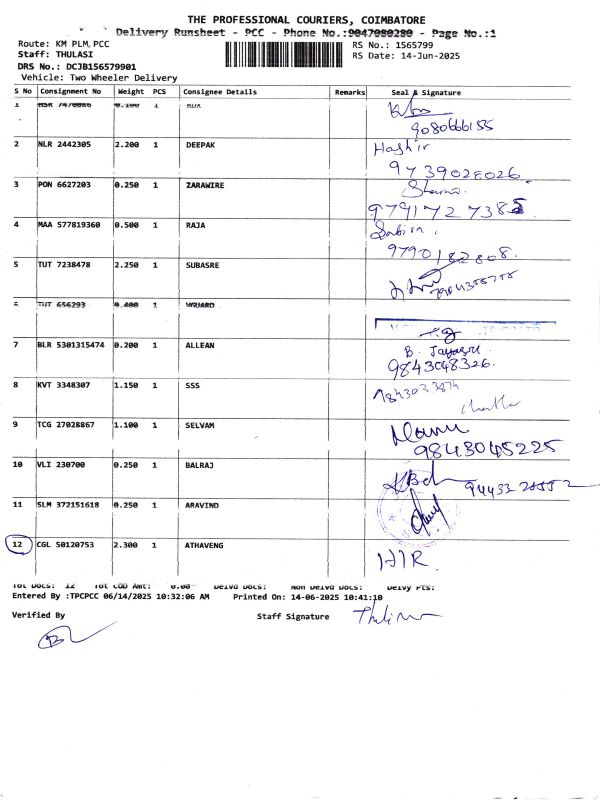 THE PROFESSIONAL COURIERS, COIMBATORE
Delivery Runsheet - PCC - Phone No.:9047080280 - Page No.:1
Route: KM PLM, PCC
RS No.: 1565799
Staff: THULASI
RS Date: 14-Jun-2025
DRS No.: DCJB156579901
Vehicle: Two Wheeler Delivery
S No Consignment No Weight PCS Consignee Details Remarks Seal & Signature
1 0.100 1
9080666155
2 NLR 2442305 2.200 1 DEEPAK Hashir
9739028026
3 PON 6627203 0.250 1 ZARAWIRE
9791727385
4 MAA 577819360 0.500 1 RAJA Sabira
9790182808
5 TUT 7238478 2.250 1 SUBASRE
6 TUT 656293 0.400 1 VGUARD
7 BLR 5301315474 0.200 1 ALLEAN B. Jayasri
9843048326
8 KVT 3348307 1.150 1 SSS
9 TCG 27028867 1.100 1 SELVAM
9843045225
10 VLI 230700 0.250 1 BALRAJ
11 SLM 372151618 0.250 1 ARAVIND
12 CGL 50120753 2.300 1 ATHAVENG
Tot Docs: 12 Tot COD Amt: 0.00 Delvd Docs: Non Delvd Docs: Delvy Pts:
Entered By :TPCPCC 06/14/2025 10:32:06 AM Printed On: 14-06-2025 10:41:10
Verified By Staff Signature